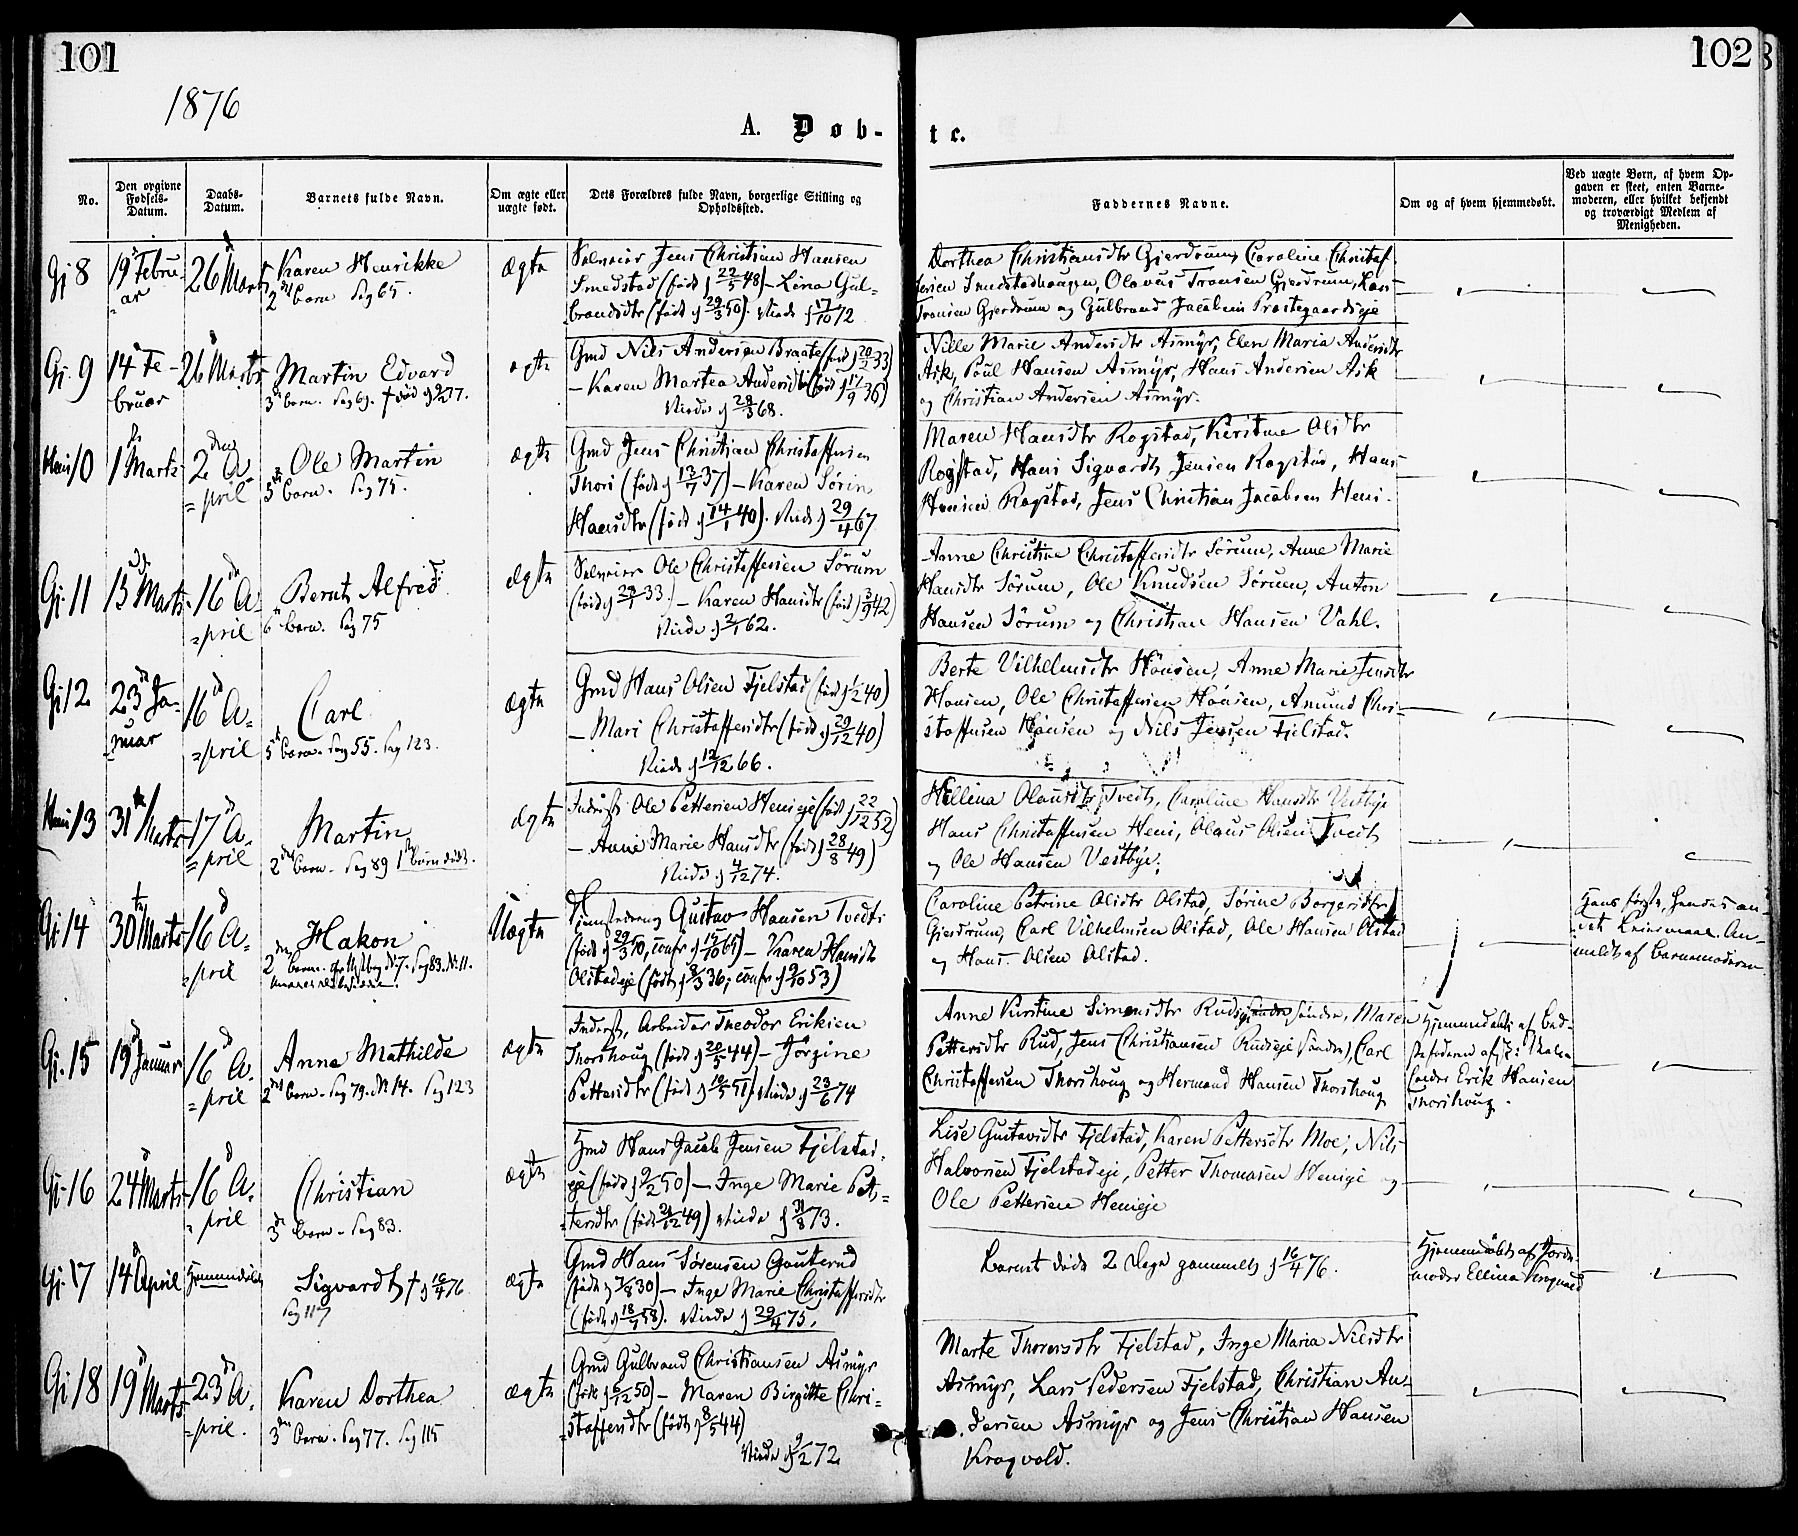 101
102
1876
A. Døb-
te.
No.
Den opgivne Fødsels-Datum.
Daabs-Datum.
Barnets fulde Navn.
Om ægte eller uægte født.
Dets Forældres fulde Navn, borgerlige Stilling og Opholdssted.
Faddernes Navne.
Om og af hvem hjemmedøbt.
Ved uægte Børn, af hvem Opgaven er skeet, enten Barnemoderen, eller hvilket bekjendt og troværdigt Medlem af Menigheden.
Gj 8
19 Februar
26 Marts
Karen Henrikke
2 barn Pag 65.
ægte
Selveier Jens Christian Hansen
Smedstad (født d 22/5 48) – Lina Gul-
brandsdtr (født d 29/3 50). Viede d 17/10 72
Dorthea Christiansdtr Gjerdrum, Caroline Christof
fersen Smedstadhaugen, Olavus Tronsen Gjerdrum, Lars
Tronsen Gjerdrum og Gulbrand Jacobsen Præstegaardseje
Gj. 9
14 Februar
26 Marts
Martin Edvard
3 barn. Pag 69.
ægte
Gmd Nils Andersen Braate (født d 20/2 33)
– Karen Martea Andersdtr (født d 17/9 36)
Viede d 28/3 68.
Nille Marie Andersdtr Asmyr, Elen Maria Andersdtr
Ask, Poul Hansen Asmyr, Hans Andersen Ask
og Christian Andersen Asmyr.
Heni 10
1 Marts
2den A-
pril
Ole Martin
5 barn. Pag 75.
ægte
Gmd Jens Christian Christoffersen
Thori (født d 13/7 37) – Karen Sørine
Hansdtr (født d 14/1 40). Viede d 29/4 67
Maren Hansdtr Rogstad, Kirstine Olsdtr
Rogstad, Hans Sigvardt Jensen Rogstad, Hans
Hansen Rogstad, Jens Christian Jacobsen Heni.
Gj. 11
13 Marts
16 A-
pril
Bernt Alfred
6 barn. Pag 75
ægte
Selveier Ole Christoffersen Sørum
(født d 29/1 33.) – Karen Hansdtr (født d 3/9 42)
Viede d 2/1 62.
Anne Christine Christoffersdtr Sørum, Anne Marie
Hansdtr Sørum, Ole Knudsen Sørum, Anton
Hansen Sørum og Christian Hansen Vahl.
Gj 12
23 Ja-
nuar
16 A-
pril
Carl
5 barn. Pag 55. Pag 123.
ægte
Gmd Hans Olsen Fjelstad (født d 1/2 40)
– Mari Christoffersdtr (født d 29/12 40)
Viede d 12/12 66.
Berte Vilhelmsdtr Hönsen, Anne Marie Jensdtr
Hönsen, Ole Christoffersen Hönsen, Amund Chri-
stoffersen Hönsen og Nils Jensen Fjelstad.
Heni 13
31 Marts
17 A-
pril
Martin
2 barn. Pag 89
ægte
Inderst Ole Pettersen Henieje (født d 22/12 52)
– Anne Marie Hansdtr (født d 28/8 49)
Viede d 4/12 74.
Hellina Olausdtr Tvedt, Caroline Hansdtr Vestbye
Hans Christoffersen Heni, Olaus Olsen Tvedt
og Ole Hansen Vestbye.
Gj 14
30 Marts
16 A-
pril
Hakon
2 barn. Pag 83. No 11.
Uægte
Gustav Hansen Tvedt
(født d 29/3 50, confr d 15/10 65) – Karen Hansdtr
Olstadeje (født d 8/3 36, confr d 9/10 53)
Caroline Petrine Olsdtr Olstad, Sørine Borgersdtr
Gjerdrum, Carl Vilhelmsen Olstad, Ole Hansen Olstad
og Hans Olsen Olstad.
Hans første, hendes an-
det Leiermaal. An-
meldt af barnemoderen
Gj. 15
19 Januar
16 A-
pril
Anne Mathilde
2 barn. Pag 79. No 14. Pag 123
ægte
Inderst, Arbeider Theodor Eriksen
Thorshoug (født d 20/5 44) – Jørgine
Pettersdtr (født d 19/5 51) Viede d 23/6 74
Anne Kirstine Simensdtr Rudseje søndre, Maren
Pettersdtr Rud, Jens Christiansen Rudseje søndre, Carl
Christoffersen Thorshoug og Hermand Hansen Thorshoug
Hjemmedøbt af bed-
stefaderen afsk: Skole-
lærer Erik Hansen
Thorshoug.
Gj 16
24 Marts
16 A-
pril
Christian
3 barn. Pag 83.
ægte
Gmd Hans Jacob Jensen Fjelstad-
eje (født d 9/2 50) – Inge Marie Pet-
tersdtr (født 21/12 49) Viede d 31/8 73.
Lise Gustavsdtr Fjelstad, Karen Pettersdtr Moe, Nils
Halvorsen Fjelstadeje, Petter Thomasen Henieje og
Ole Pettersen Henieje
Gj. 17
14 April
Hjemmedøbt
Sigvardt † d 16/4 76
Pag 117
ægte
Gmd Hans Sørensen Gauterud
(født d 7/8 30) – Inge Marie Christoffersdtr
(født d 18/7 58). Viede d 29/4 75.
Barnet døde 2 Dage gammelt d 16/4 76.
Hjemmedøbt af Jorde-
moder Ellina Kragvold
Gj 18
19 Marts
23 A-
pril.
Karen Dorthea
3 barn. Pag 77. Pag 115
ægte
Gmd Gulbrand Christiansen Asmyr
(født d 6/12 50) – Maren Birgitte Chri-
stoffersdtr (født d 8/5 44)
Viede d 9/2 72.
Marte Thorersdtr Fjelstad, Inge Maria Nilsdtr
Asmyr, Lars Pedersen Fjelstad, Christian An-
dersen Asmyr og Jens Christian Hansen
Kragvold.